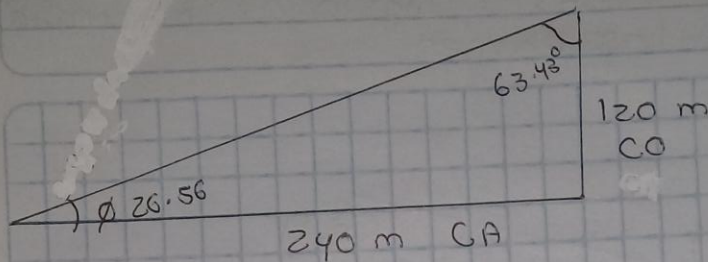 63.43°
120 m
CO
ϕ 26.56
240 m CA